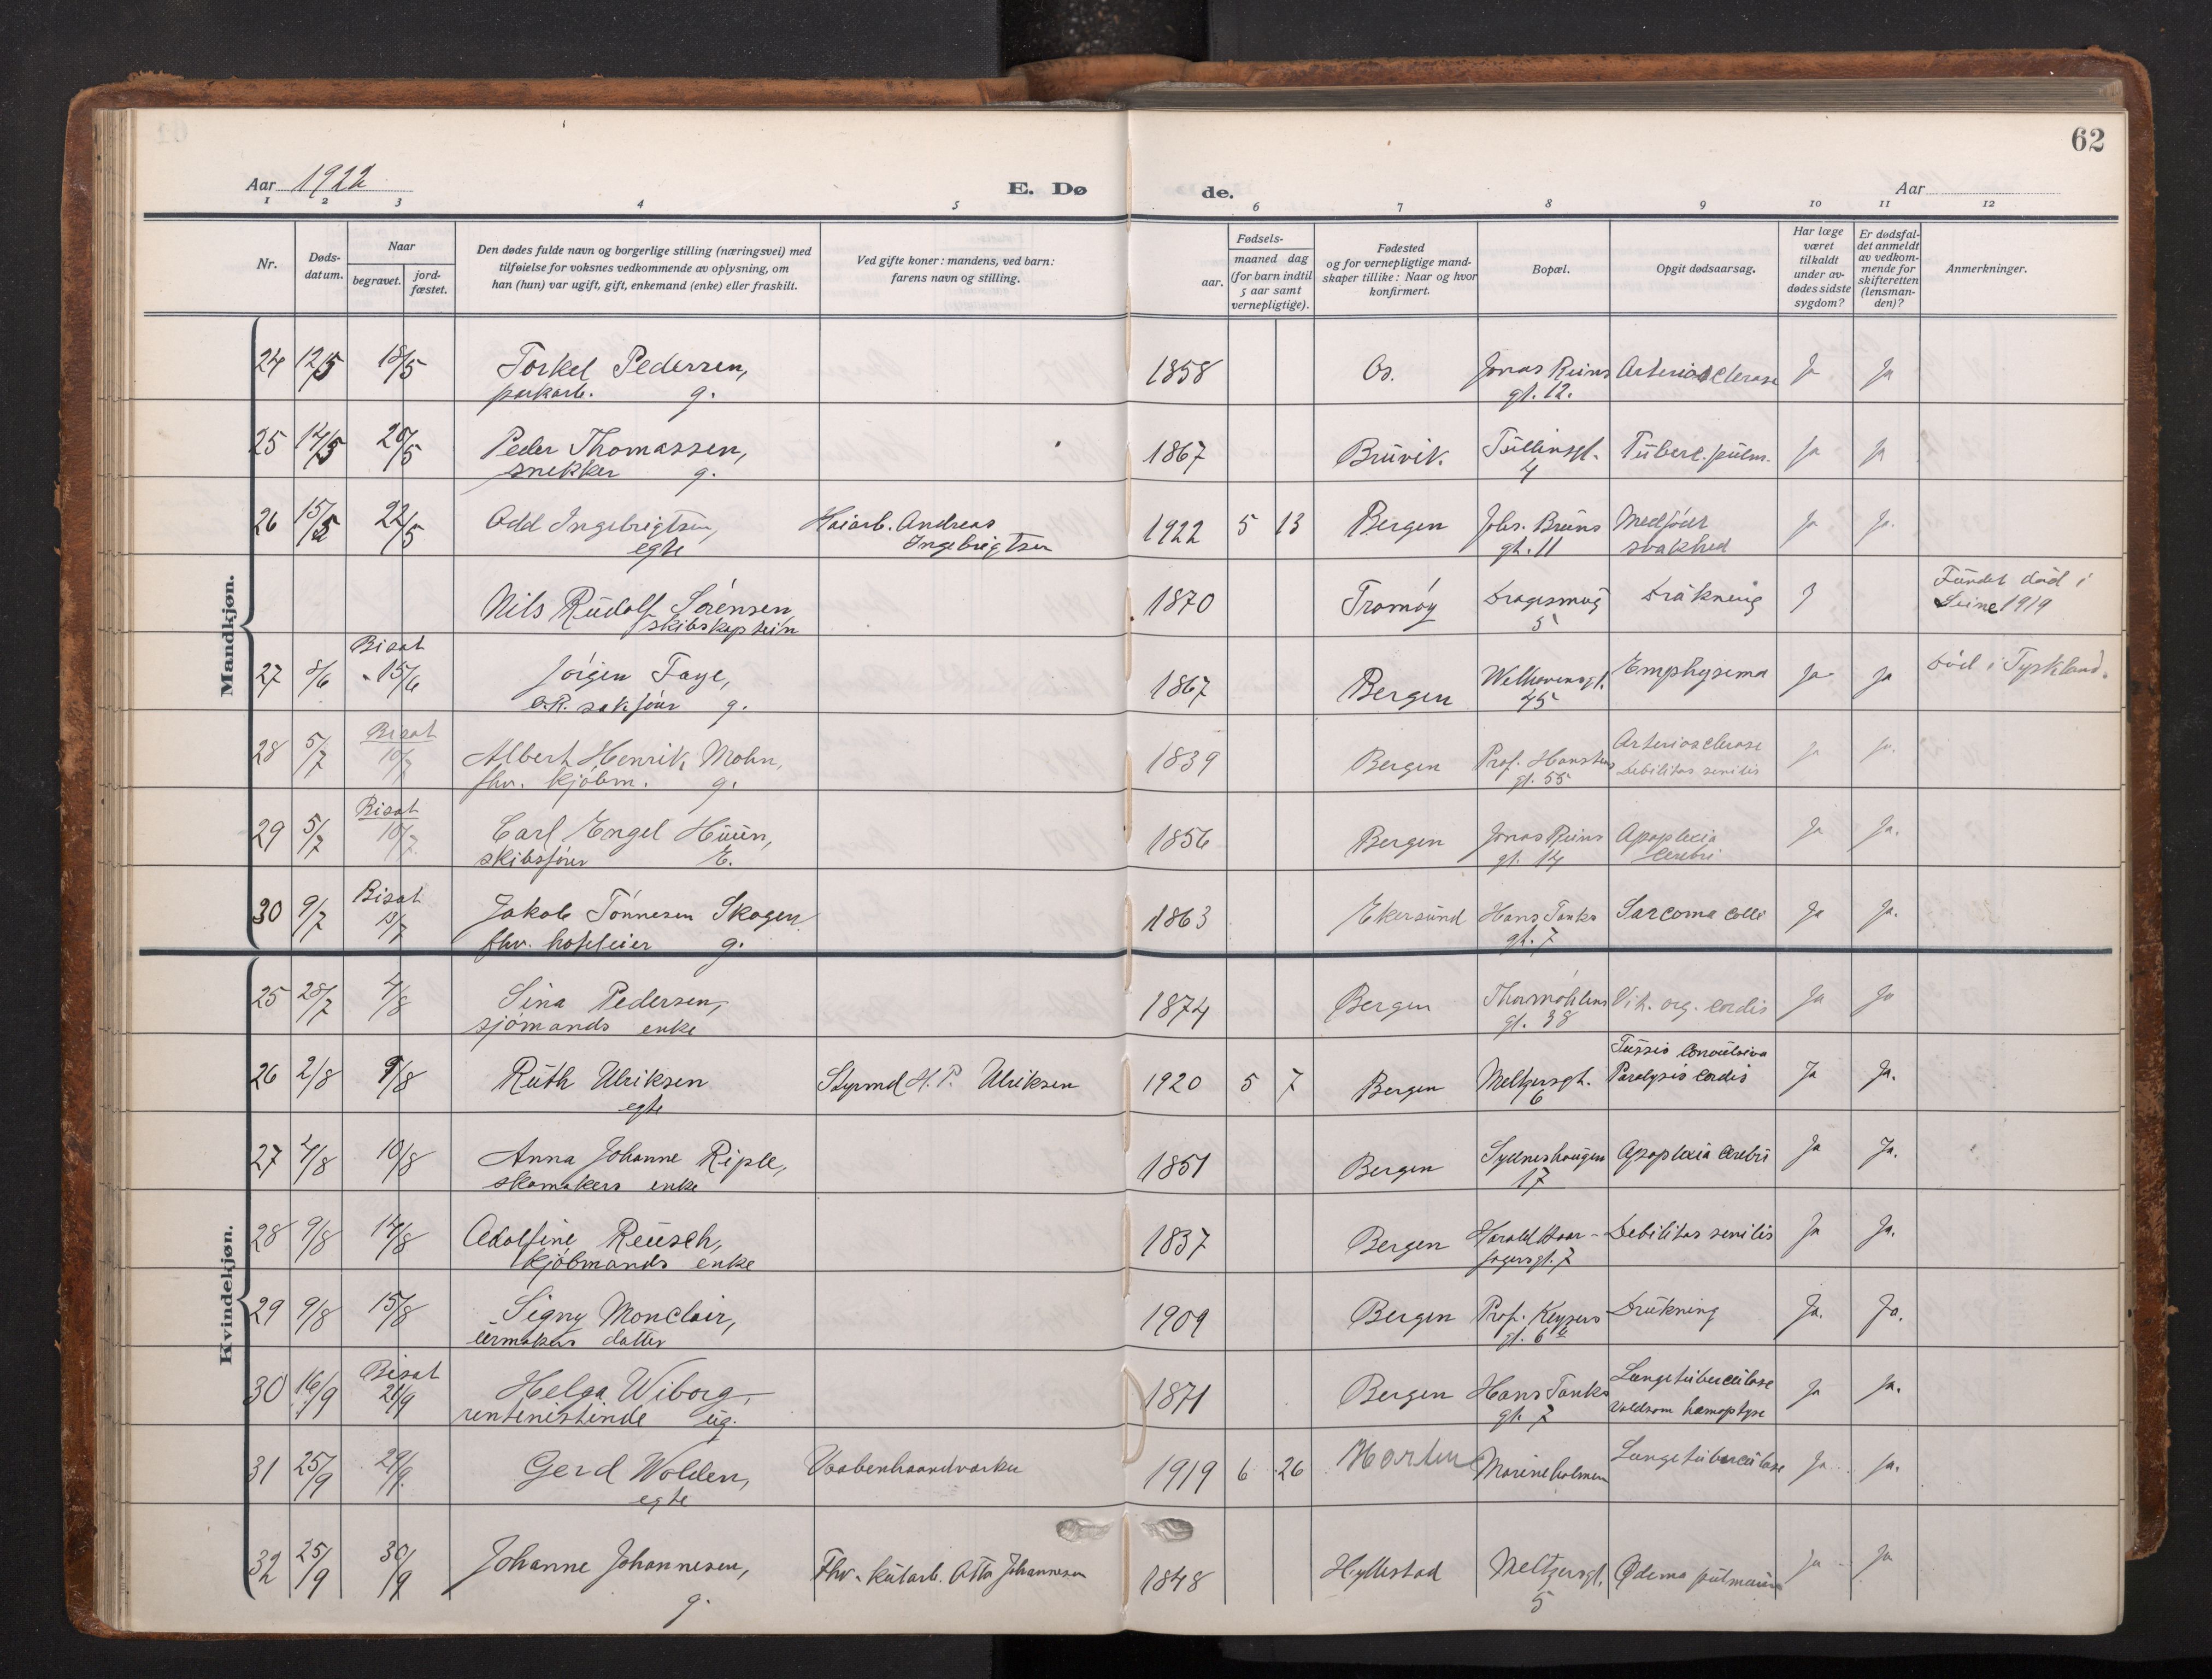 62
Aar 1922
E. Dø
de.
Aar
1 2 3 4 5 6 7 8 9 10 11 12
Nr.
Døds-
datum.
Naar
begravet.
jord-
fæstet.
Den dødes fulde navn og borgerlige stilling (næringsvei) med
tilføielse for voksnes vedkommende av oplysning, om
han (hun) var ugift, gift, enkemand (enke) eller fraskilt.
Ved gifte koner: mandens, ved barn:
farens navn og stilling.
Fødsels-
aar.
maaned dag
(for barn indtil
5 aar samt
vernepligtige).
Fødested
og for vernepligtige mand-
skaper tillike: Naar og hvor
konfirmert.
Bopæl.
Opgit dødsaarsag.
Har læge
været
tilkaldt
under av-
dødes sidste
sygdom?
Er dødsfal-
det anmeldt
av vedkom-
mende for
skifteretten
(lensman-
den)?
Anmerkninger.
Mandkjøn.
24 12/5 18/5 Torkel Pedersen, 1858 Os. Jonas Reins Arteriosclerose Ja Ja
parkarb. g. gt. 12.
25 12/5 20/5 Peder Thomassen, 1867 Bruvik. Tullinsgt. Tuberc. pulm. Ja Ja
snekker g. 4
26 15/5 22/5 Odd Ingebrigtsen, Haiarb. Andreas 1922 5 13 Bergen Johs. Bruns Medfødt Ja Ja.
egte Ingebrigtsen gt. 11 svakhed
Nils Rudolf Sørensen 1870 Tromøy Dragesmug Drukning Fundet død i
skibskaptein 5 Seine 1919
Bisat
27 8/6 15/6 Jørgen Faye, 1867 Bergen Welhavensgt. Emphysema Ja Ja Død i Tyskland.
o.R. sakfører g. 45
Bisat
28 5/7 10/7 Albert Henrik Mohn, 1839 Bergen Prof. Hansteens Arteriosclerose Ja Ja.
fhv. kjøbm. g. gt. 55 Debilitas senilis
Bisat
29 5/7 10/7 Carl Engel Huun, 1856 Bergen Jonas Reins Apoplexia Ja Ja.
skibsfører E. gt. 14 cerebri
Bisat
30 9/7 13/7 Jakob Tønnesen Skogen 1863 Ekersund Hans Tanks Sarcoma colli Ja Ja.
fhv. hoteleier g. gt. 7
Kvindekjøn.
25 28/7 4/8 Sina Pedersen, 1874 Bergen Thormøhlens Vit. org. cordis Ja Ja
sjømands enke gt. 38
26 2/8 9/8 Ruth Ulriksen Styrmd H. P. Ulriksen 1920 5 7 Bergen Meltzersgt. Tussis convulsiva Ja Ja.
egte 6 Paralysis cordis
27 4/8 10/8 Anna Johanne Riple, 1851 Bergen Sydneshaugen Apoplexia cerebri Ja Ja.
skomakers enke 17
28 9/8 14/8 Adolfine Reusch, 1837 Bergen Harald Haar- Debilitas senilis Ja Ja.
kjøbmands enke fagersgt. 7
29 9/8 15/8 Signy Monclair, 1909 Bergen Prof. Keysers Drukning Ja. Ja.
urmakers datter gt. 6
Bisat
30 16/9 21/9 Helga Wiborg, 1871 Bergen Hans Tanks Lungetuberculose Ja Ja.
rentenistinde ug. gt. 7 Voldsom hæmoptyse
31 25/9 29/9. Gerd Wolden, Vaabenhaandverker 1919 6 26 Horten Marineholmen Lungetuberculose Ja Ja.
egte
32 25/9 30/9 Johanne Johannesen, Fhv. kularb. Otto Johannesen 1848 Hyllestad Meltzersgt. Ødema pulmonum Ja Ja
g. 5